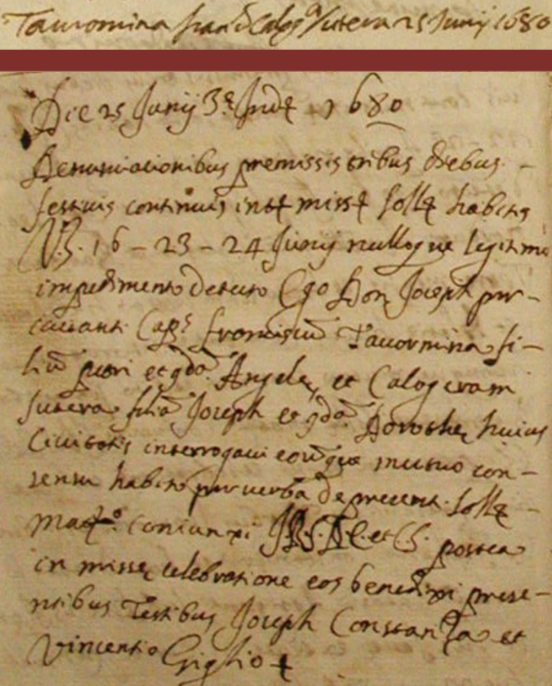 Tauromina fran d Calog a Sutera 25 Junij 1680
Die 25 Junij 3e Inde 1680
Denunciationibus premissis tribus diebus -
festiuis continuis inter miss solle habitis
16 - 23 - 24 Junij nulloque legitimo
impedimento detecto Ego Don Joseph pur-
Cap. franciscu Tauormina fi-
liu et qda Angele, et Calogeram
Sutera filia Joseph et qda Dorothe, huius
Ciuitatis interrogaui eoruque mutuo con-
sensu habito per uerba de presenti solle -
mat.o coniunxi et postea
in misse celebratione eos benedixi prese-
ntibus Testibus Joseph Constanza et
Vincentio Griglio +